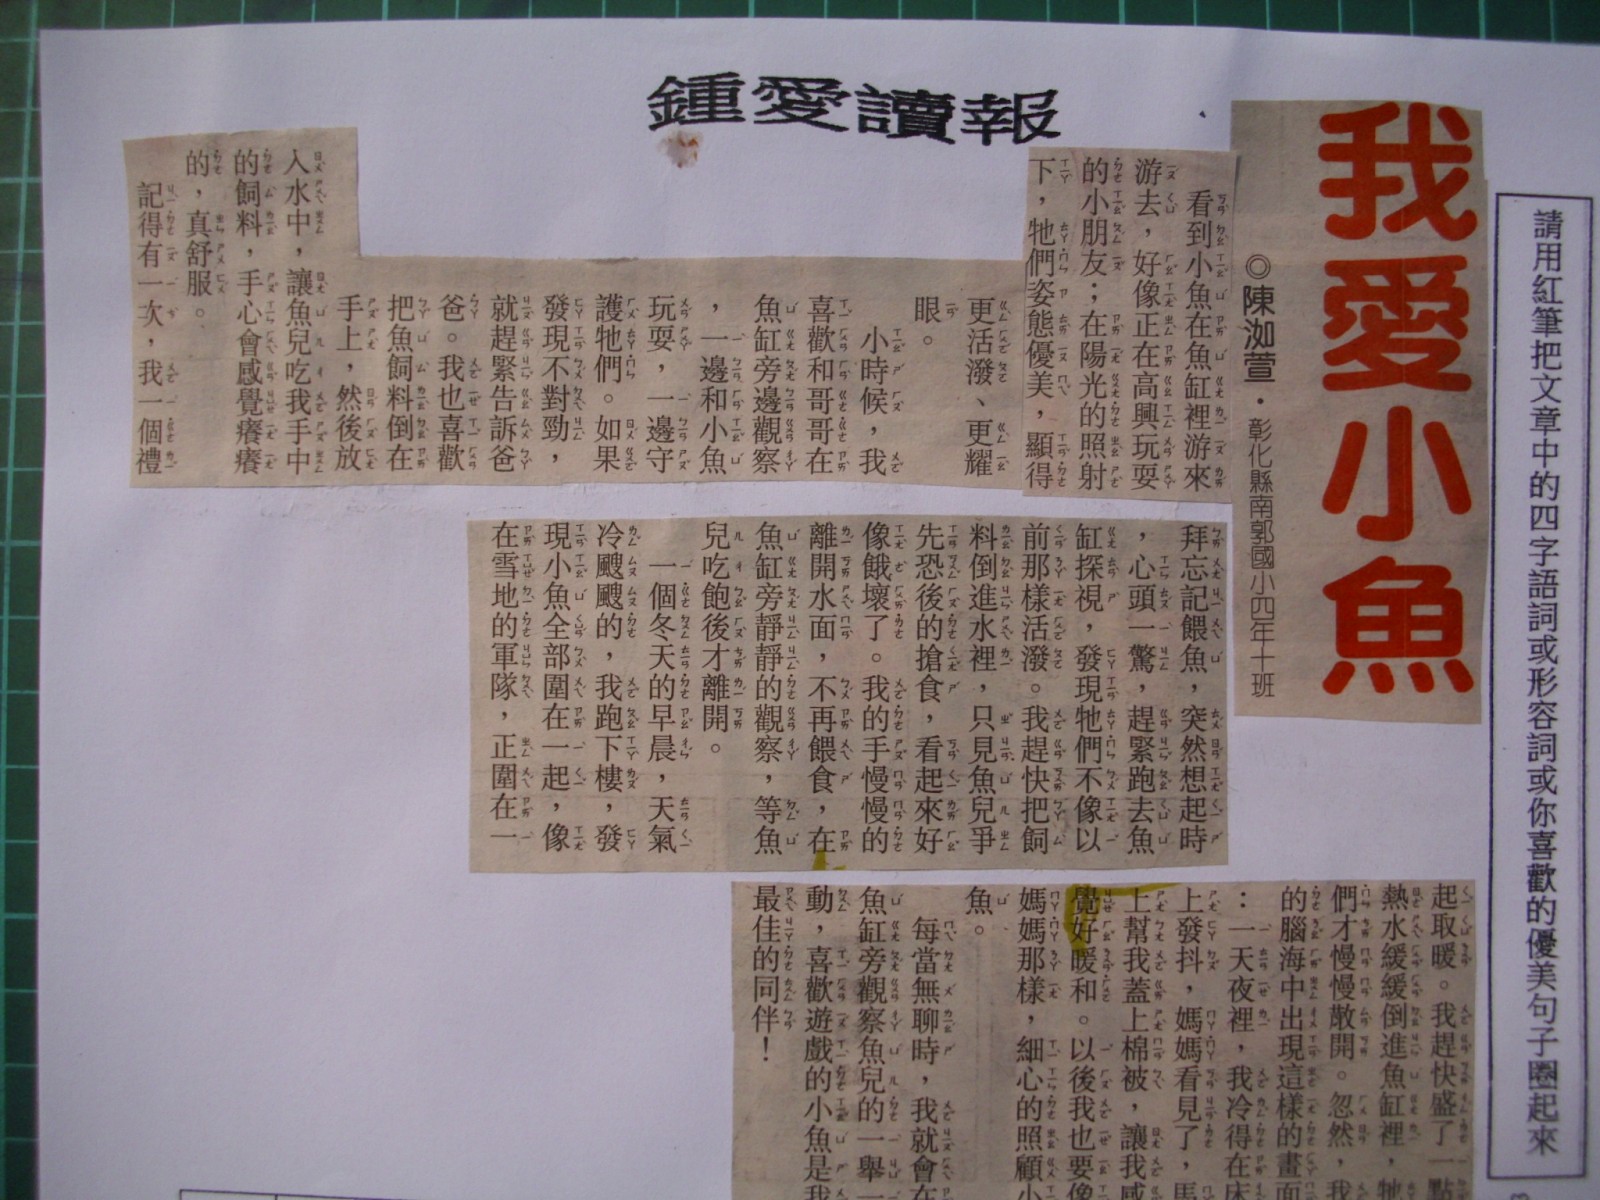 鍾愛讀報
請用紅筆把文章中的四字語詞或形容詞或你喜歡的優美句子圈起來
我愛小魚
◎陳洳萱・彰化縣南郭國小四年十班
看到小魚在魚缸裡游來
游去，好像正在高興玩耍
的小朋友；在陽光的照射
下，牠們姿態優美，顯得
更活潑、更耀
眼。
小時候，我
喜歡和哥哥在
魚缸旁邊觀察
，一邊和小魚
玩耍，一邊守
護牠們。如果
發現不對勁，
就趕緊告訴爸
爸。我也喜歡
把魚飼料倒在
手上，然後放
入水中，讓魚兒吃我手中
的飼料，手心會感覺癢癢
的，真舒服。
記得有一次，我一個禮
拜忘記餵魚，突然想起時
，心頭一驚，趕緊跑去魚
缸探視，發現牠們不像以
前那樣活潑。我趕快把飼
料倒進水裡，只見魚兒爭
先恐後的搶食，看起來好
像餓壞了。我的手慢慢的
離開水面，不再餵食，在
魚缸旁靜靜的觀察，等魚
兒吃飽後才離開。
一個冬天的早晨，天氣
冷颼颼的，我跑下樓，發
現小魚全部圍在一起，像
在雪地的軍隊，正圍在一
起取暖。我趕快盛了一點
熱水緩緩倒進魚缸裡，牠
們才慢慢散開。忽然，我
的腦海中出現這樣的畫面
：一天夜裡，我冷得在床
上發抖，媽媽看見了，馬
上幫我蓋上棉被，讓我感
覺好暖和。以後我也要像
媽媽那樣，細心的照顧小
魚。
每當無聊時，我就會在
魚缸旁觀察魚兒的一舉一
動，喜歡遊戲的小魚是我
最佳的同伴！